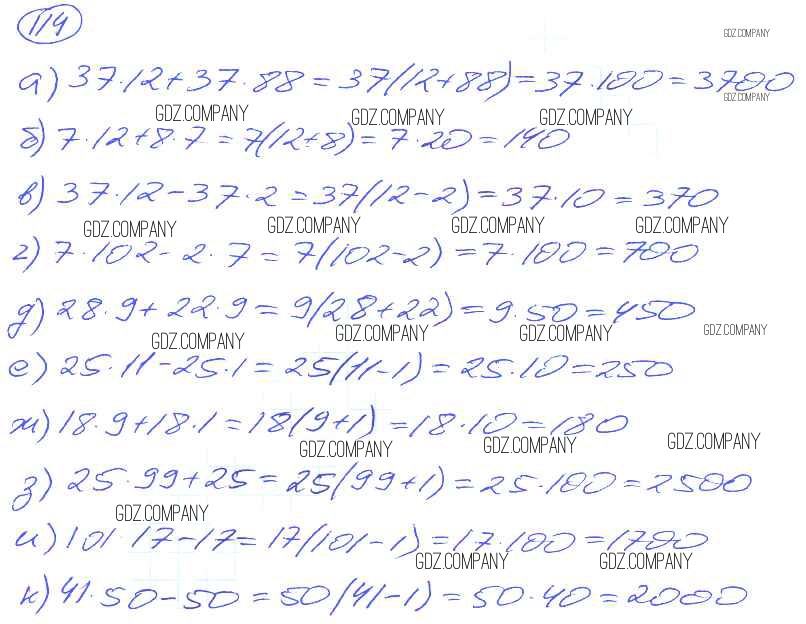 114
GDZ.COMPANY
а) 37·12+37·88=37(12+88)=37·100=3700
GDZ.COMPANY
GDZ.COMPANY GDZ.COMPANY GDZ.COMPANY
б) 7·12+8·7=7(12+8)=7·20=140
в) 37·12-37·2=37(12-2)=37·10=370
GDZ.COMPANY GDZ.COMPANY GDZ.COMPANY GDZ.COMPANY
г) 7·102-2·7=7(102-2)=7·100=700
д) 28·9+22·9=9(28+22)=9·50=450
GDZ.COMPANY GDZ.COMPANY GDZ.COMPANY GDZ.COMPANY
е) 25·11-25·1=25(11-1)=25·10=250
ж) 18·9+18·1=18(9+1)=18·10=180
GDZ.COMPANY GDZ.COMPANY GDZ.COMPANY
з) 25·99+25=25(99+1)=25·100=2500
GDZ.COMPANY
и) 101·17-17=17(101-1)=17·100=1700
GDZ.COMPANY GDZ.COMPANY
к) 41·50-50=50(41-1)=50·40=2000